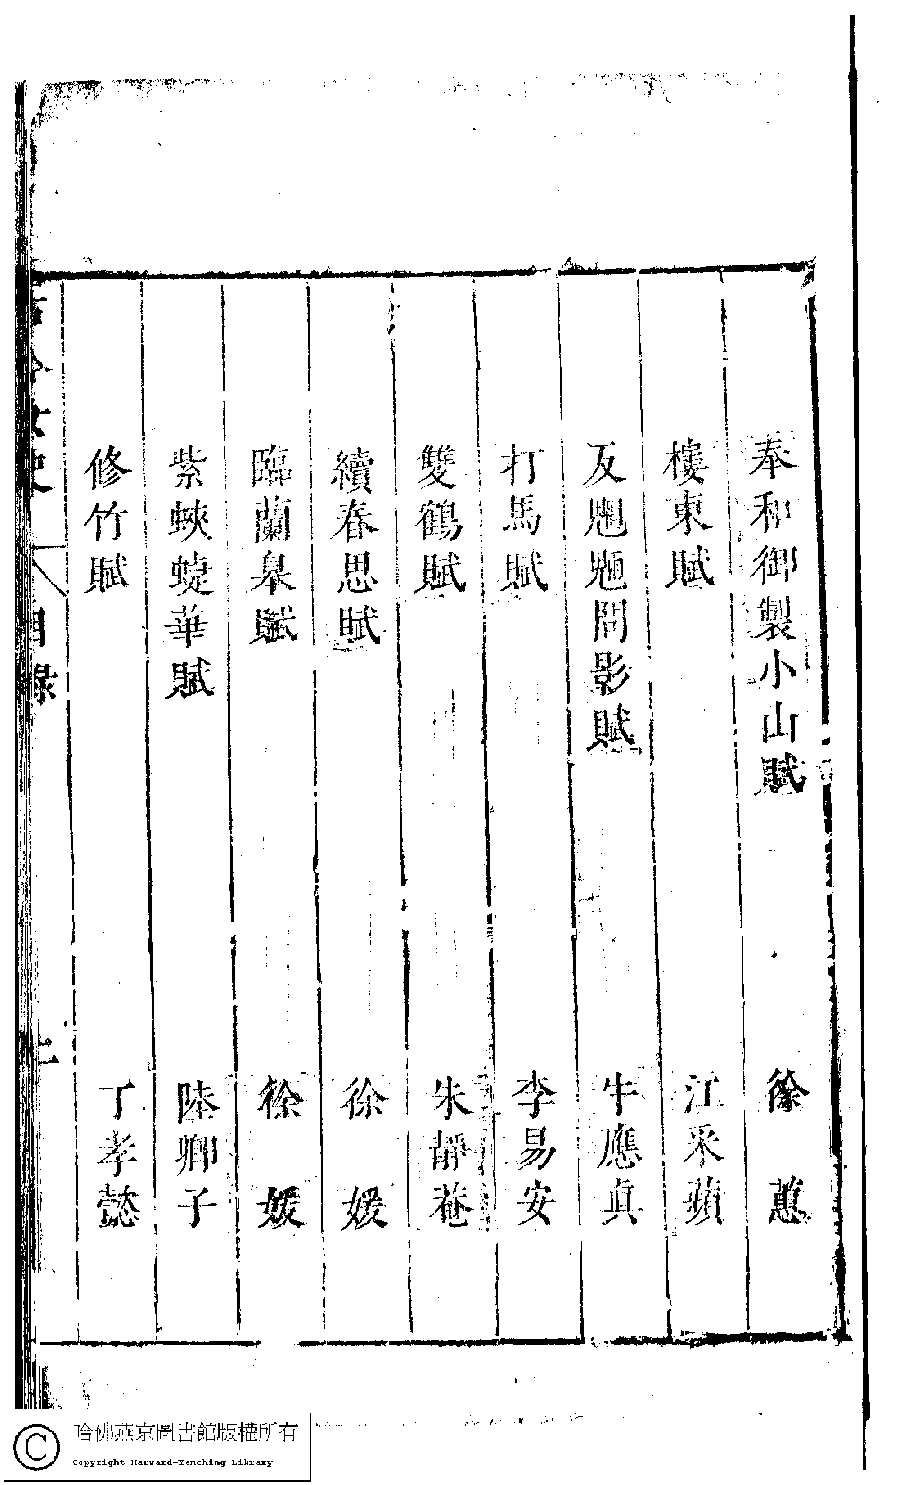 奉和御製小山賦　徐蕙
樓東賦　江采蘋
反魍魎問影賦　牛應真
打馬賦　李易安
雙鶴賦　朱靜菴
續春思賦　徐媛
臨蘭皋賦　徐媛
紫蛺蜨華賦　陸卿子
修竹賦　丁孝懿
古今女史　目錄
哈佛燕京圖書館版權所有
Copyright Harvard-Yenching Library